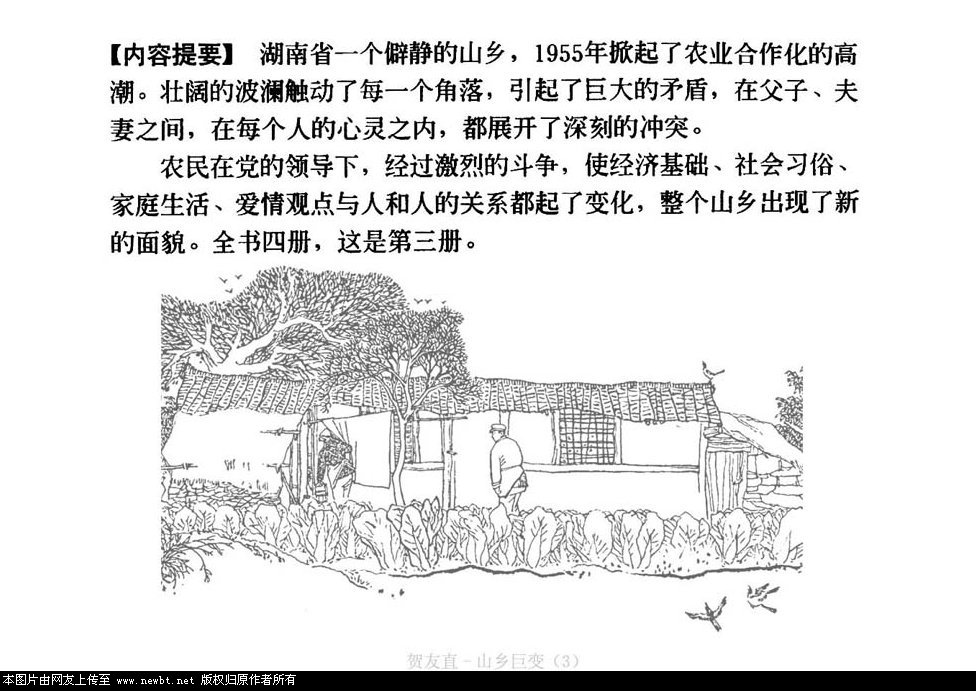 【内容提要】 湖南省一个僻静的山乡，1955年掀起了农业合作化的高
潮。壮阔的波澜触动了每一个角落，引起了巨大的矛盾，在父子、夫
妻之间，在每个人的心灵之内，都展开了深刻的冲突。
农民在党的领导下，经过激烈的斗争，使经济基础、社会习俗、
家庭生活、爱情观点与人和人的关系都起了变化，整个山乡出现了新
的面貌。全书四册，这是第三册。
贺友直－山乡巨变（3）
本图片由网友上传至 www.newbt.net 版权归原作者所有